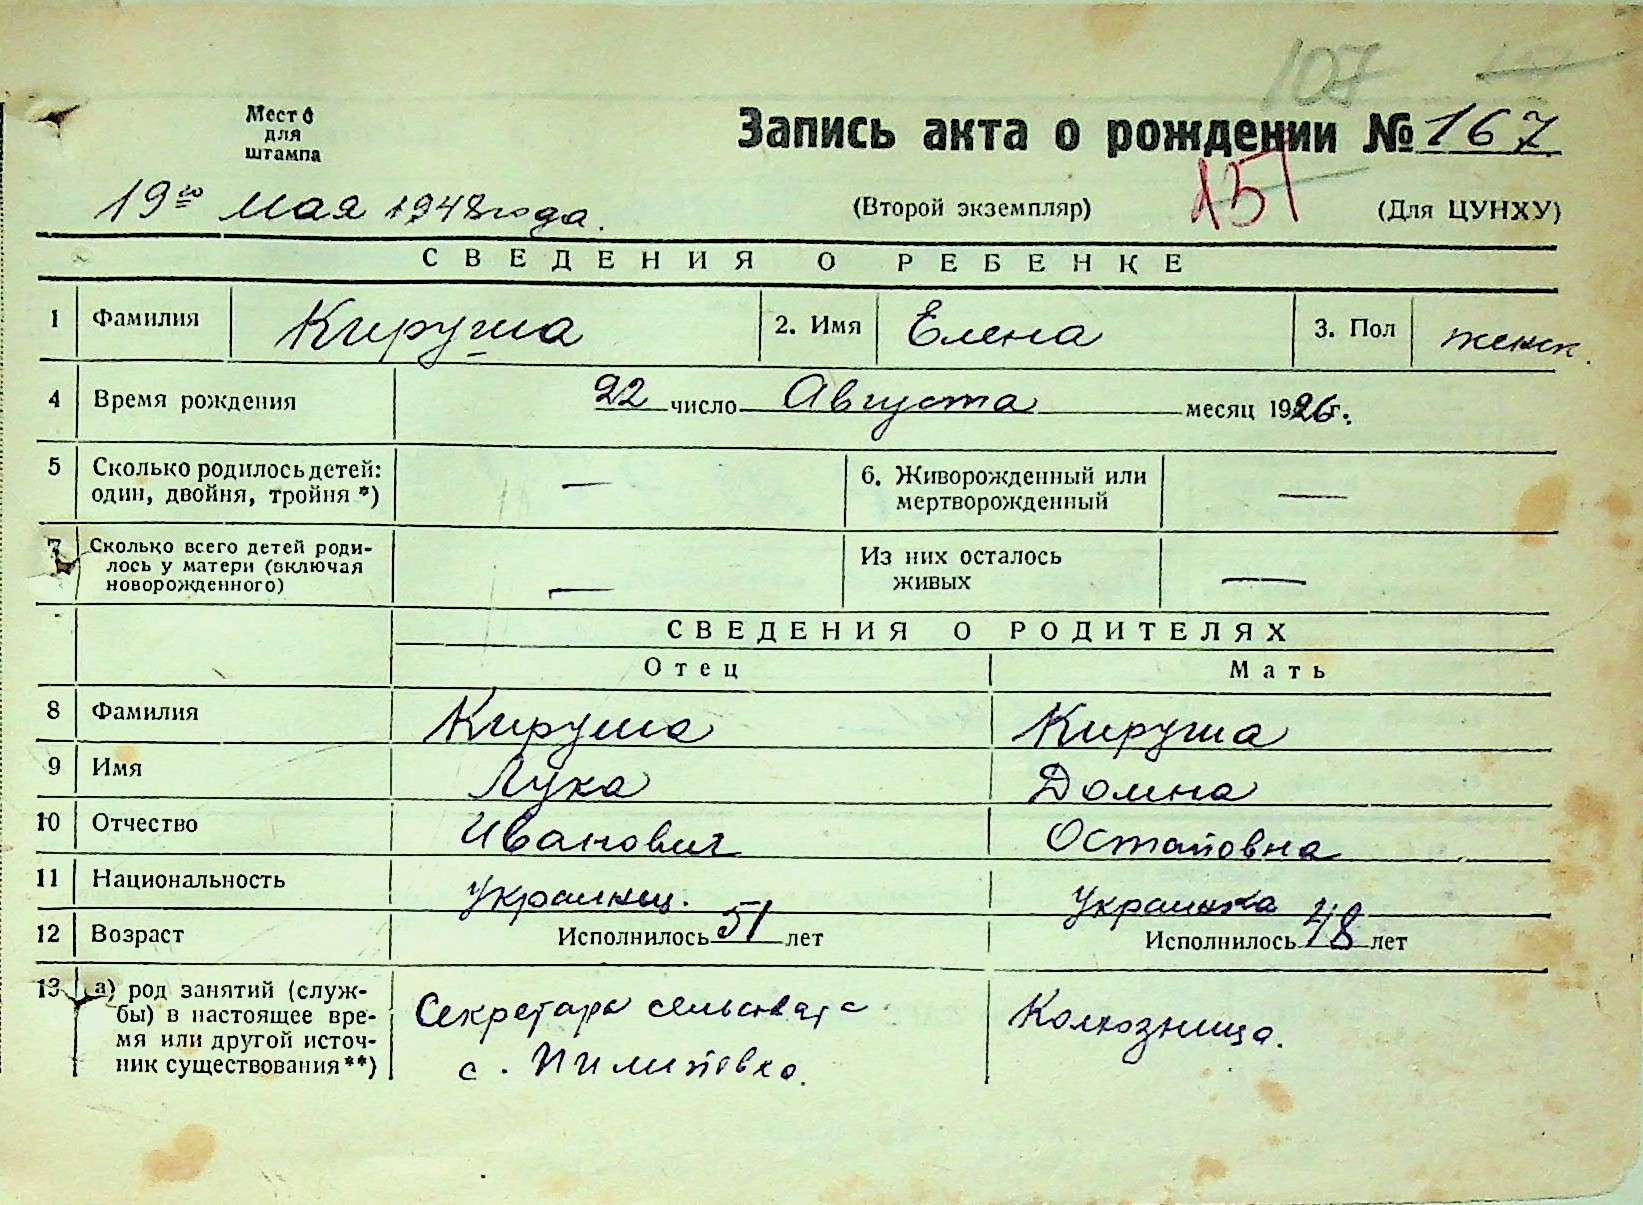 107
Место
для
штампа
Запись акта о рождении № 167
19го Мая 1948 года.
(Второй экземпляр)
151
(Для ЦУНХУ)
СВЕДЕНИЯ О РЕБЕНКЕ
1 Фамилия Кируша 2. Имя Елена 3. Пол женск.
4 Время рождения 22 число Августа месяц 1926 г.
5 Сколько родилось детей: один, двойня, тройня *) — 6. Живорожденный или мертворожденный —
7 Сколько всего детей роди-
лось у матери (включая
новорожденного) — Из них осталось живых —
СВЕДЕНИЯ О РОДИТЕЛЯХ
Отец Мать
8 Фамилия Кируша Кируша
9 Имя Лука Домна
10 Отчество Иванович Остаповна
11 Национальность Украинец. Украинка
12 Возраст Исполнилось 51 лет Исполнилось 48 лет
13 а) род занятий (служ-
бы) в настоящее вре-
мя или другой источ-
ник существования **)
Секретарь сельсовета
с. Пилиповка.
Колхозница.